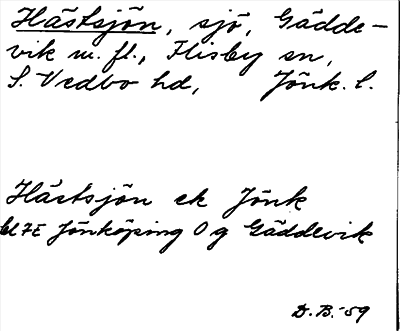 Hästsjön, sjö, Gädde-
vik m. fl., Flisby sn,
S. Vedbo hd, Jönk. l.
Hästsjön ek Jönk
7E Jönköping O g Gäddevik
D. B. -59